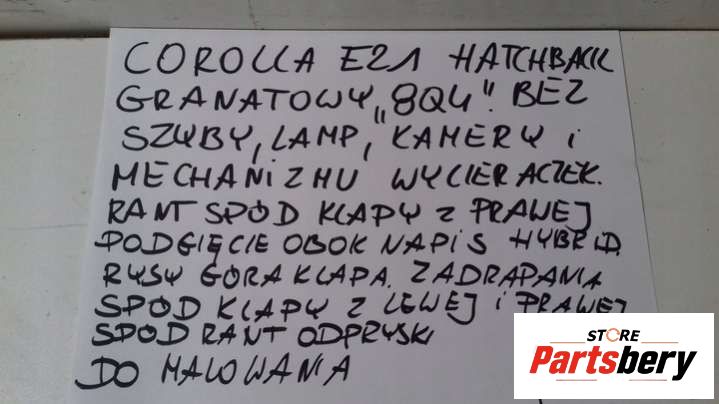 COROLLA E21 HATCHBACK
GRANATOWY „8Q4". BEZ
SZYBY, LAMP, KAMERY i
MECHANIZMU WYCIERACZEK.
RANT SPÓD KLAPY Z PRAWEJ
PODGIĘCIE OBOK NAPIS HYBRID.
RYSY GÓRA KLAPA. ZADRAPANIA
SPÓD KLAPY Z LEWEJ i PRAWEJ
SPÓD RANT ODPRYSKI
DO MALOWANIA
STORE
Partsbery